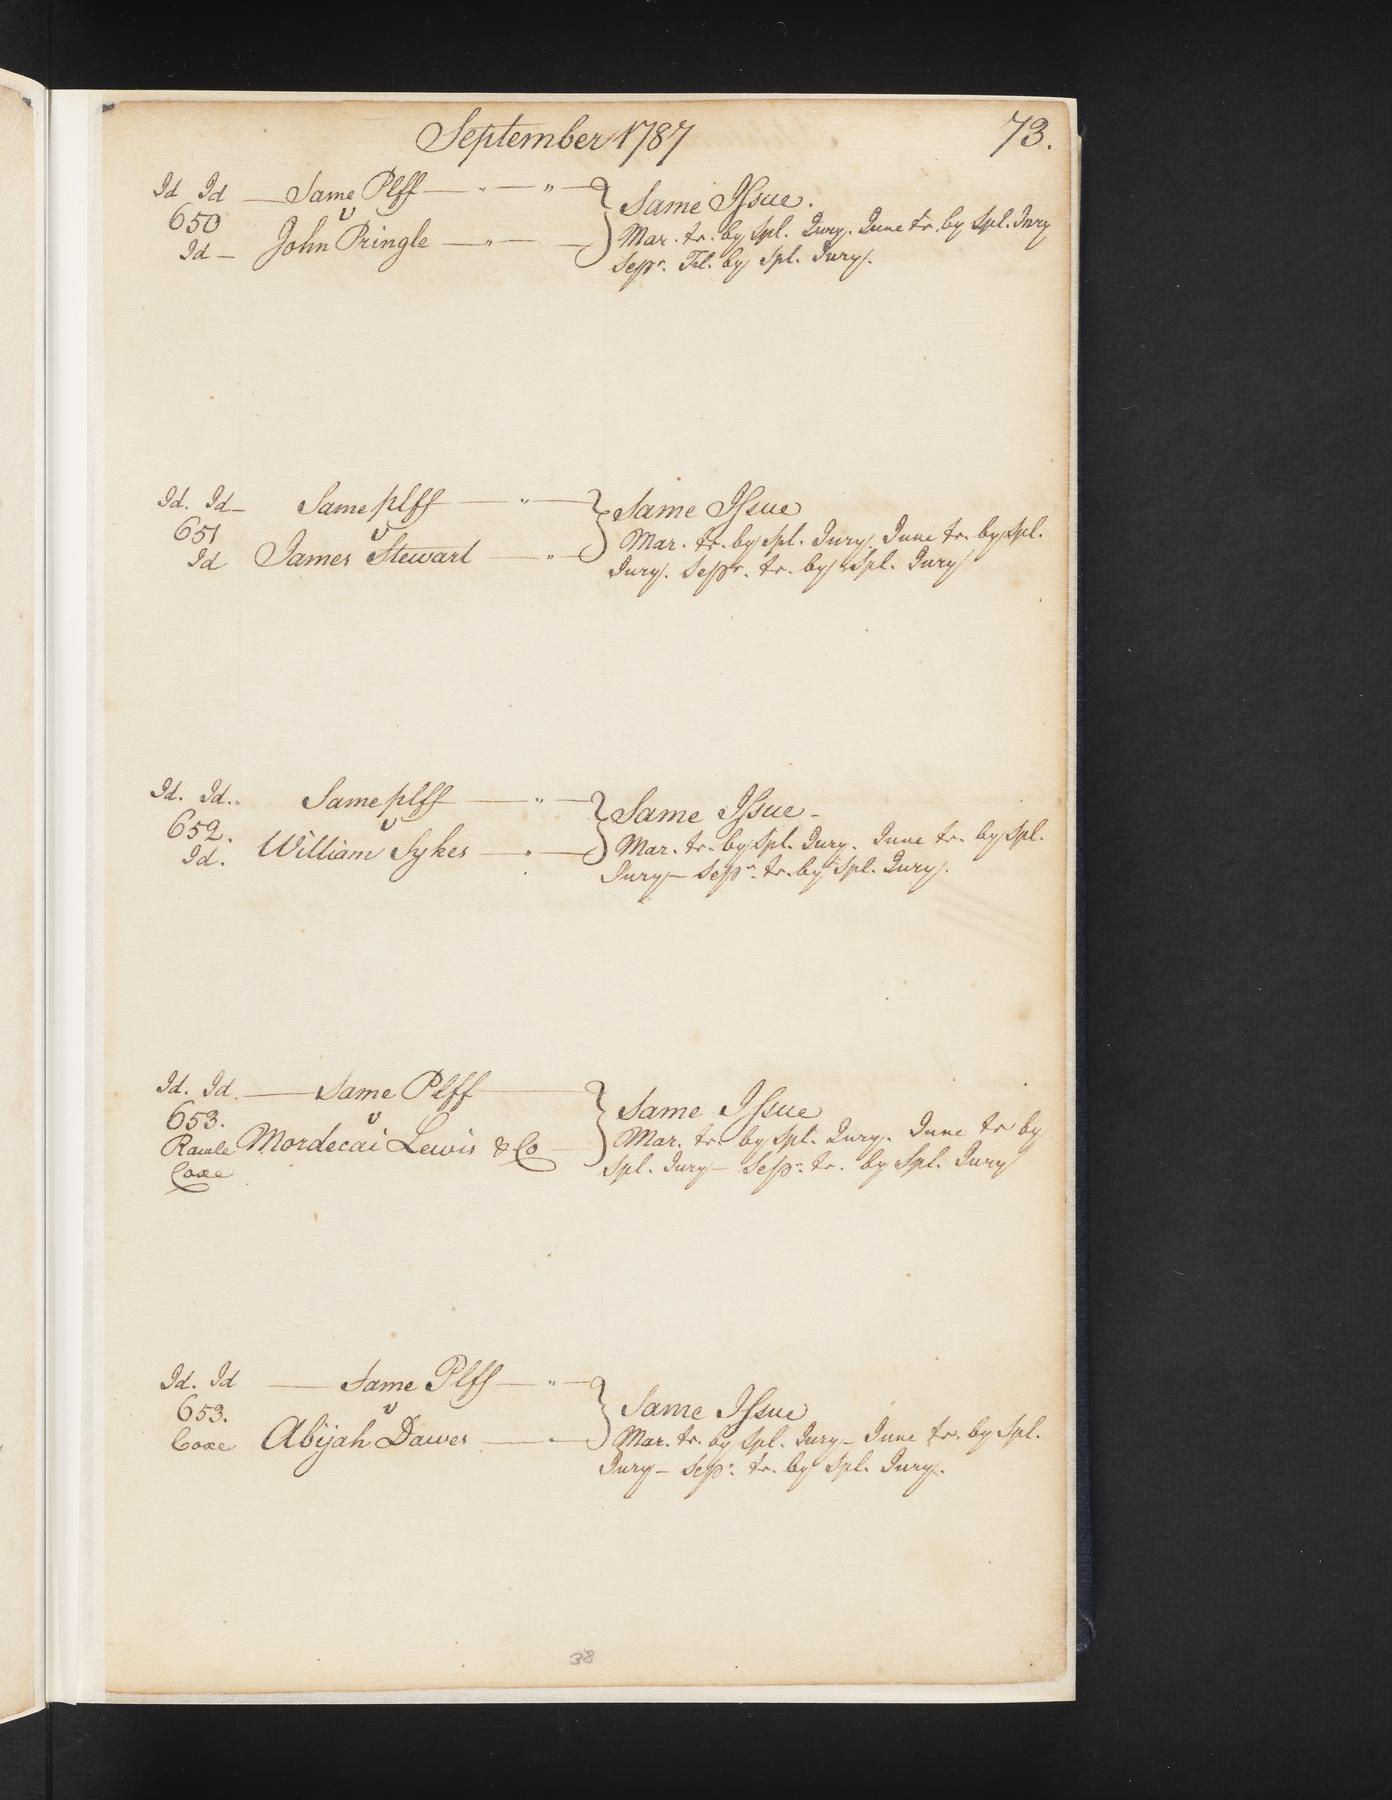 September 1787
73.
Id Id — Same Plff — " — " —
650
v
Id — John Pringle — " —
Same Issue.
Mar. tr. by Spl. Jury. June tr. by Spl. Jury
Sepr. Trl. by Spl. Jury.
Id. Id — Same plff — " —
651
v
Id James Stewart — " —
Same Issue
Mar. tr. by Spl. Jury. June tr. by Spl.
Jury. Sepr. tr. by Spl. Jury
Id. Id. Same plff — " —
652.
v
Id. William Sykes — " —
Same Issue —
Mar. tr. by Spl. Jury. June tr. by Spl.
Jury — Sepr. tr. by Spl. Jury.
Id. Id. — Same Plff —
653.
v
Rawle Mordecai Lewis & Co —
Coxe
Same Issue
Mar. tr. by Spl. Jury. June tr by
Spl. Jury — Sepr. tr. by Spl. Jury
Id. Id — Same Plff — " —
653.
v
Coxe Abijah Dawes —
Same Issue
Mar. tr. by Spl. Jury — June tr. by Spl.
Jury — Sepr. tr. by Spl. Jury.
38